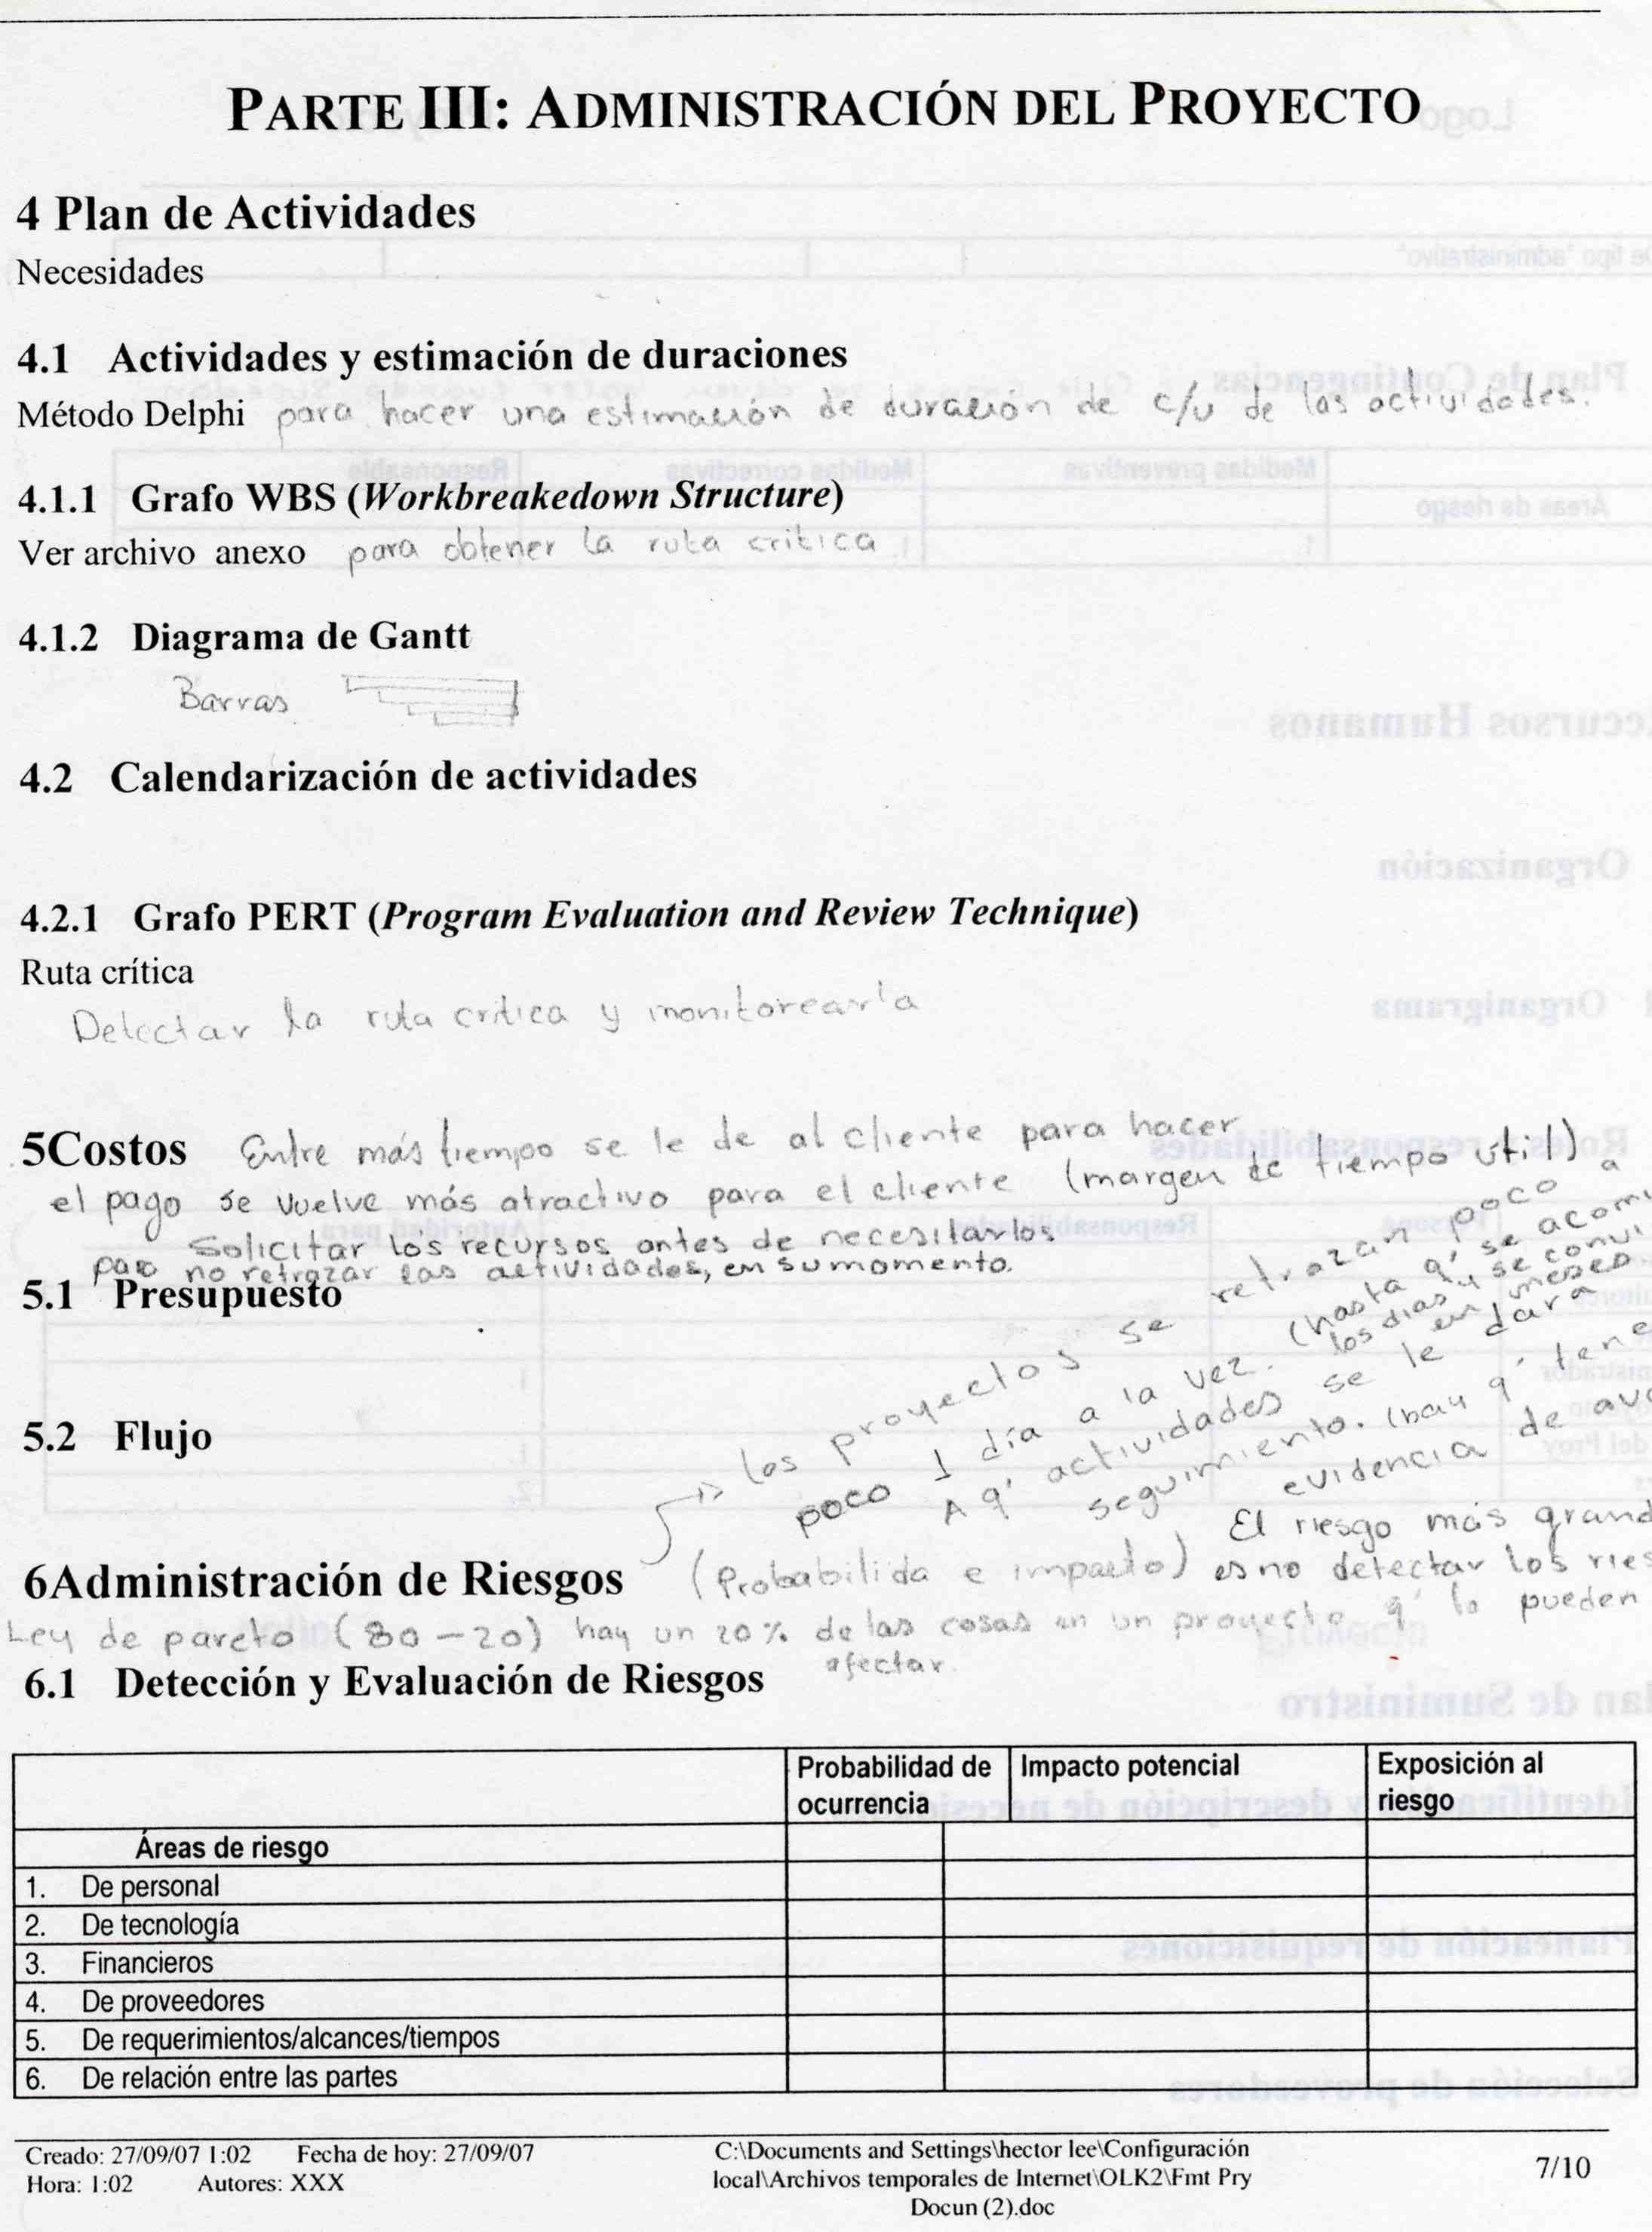 PARTE III: ADMINISTRACIÓN DEL PROYECTO
4 Plan de Actividades
Necesidades
4.1 Actividades y estimación de duraciones
Método Delphi para hacer una estimación de duración de c/u de las actividades.
4.1.1 Grafo WBS (Workbreakedown Structure)
Ver archivo anexo para obtener la ruta critica
4.1.2 Diagrama de Gantt
Barras
4.2 Calendarización de actividades
4.2.1 Grafo PERT (Program Evaluation and Review Technique)
Ruta crítica
Detectar la ruta critica y monitorearla
5Costos Entre más tiempo se le de al cliente para hacer
el pago se vuelve más atractivo para el cliente (margen de tiempo útil)
Solicitar los recursos antes de necesitarlos
para no retrazar las actividades, en su momento.
5.1 Presupuesto
5.2 Flujo
los proyectos se retrazan poco a
poco 1 día a la vez. (hasta q' se
los dias y se
en meses
A q' actividades se le dara
seguimiento. (hay q'
evidencia de
El riesgo más
6Administración de Riesgos (Probabilida e impacto) es no detectar los
Ley de pareto (80-20) hay un 20% de las cosas en un proyecto q' lo pueden
afectar.
6.1 Detección y Evaluación de Riesgos
Probabilidad de ocurrencia Impacto potencial Exposición al riesgo
Áreas de riesgo
1. De personal
2. De tecnología
3. Financieros
4. De proveedores
5. De requerimientos/alcances/tiempos
6. De relación entre las partes
Creado: 27/09/07 1:02 Fecha de hoy: 27/09/07
Hora: 1:02 Autores: XXX
C:\Documents and Settings\hector lee\Configuración
local\Archivos temporales de Internet\OLK2\Fmt Pry
Docun (2).doc
7/10